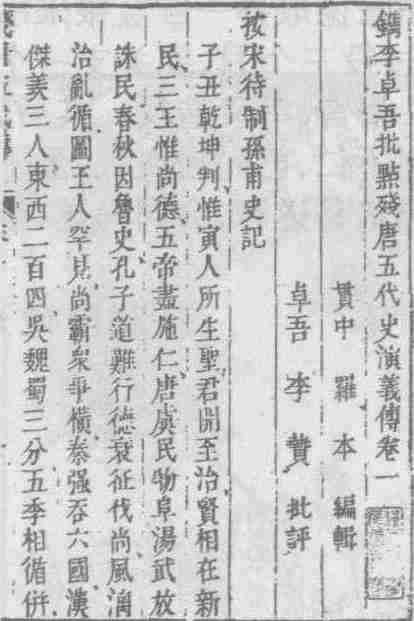 鐫李卓吾批點殘唐五代史演義傳卷一
貫中羅本編輯
卓吾李贄批評
按宋待制孫甫史記
子丑乾坤判惟寅人所生聖君開至治賢相在新
民三王惟尚德五帝盡施仁唐虞民物阜湯武放
誅民春秋因魯史孔子道難行德衰征伐尚風漓
治亂循圖王人罕見尚霸衆爭横秦强吞六國漢
傑羙三人東西二百四吳魏蜀三分五季相循併